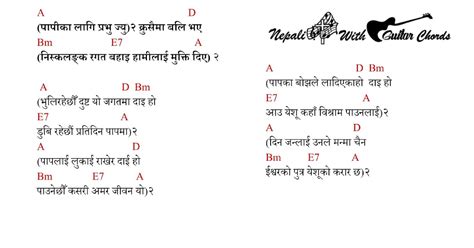 A D
(पापीका लागि प्रभु ज्यु)२ क्रुसैमा बलि भए
Bm E7 A
(निस्कलङ्क रगत वहाइ हामीलाई मुक्ति दिए) २
A D Bm
(भुलिरहेछौं दुष्ट यो जगतमा दाइ हो
E7 A
डुबि रहेछौं प्रतिदिन पापमा)२
A D
(पापलाई लुकाई राखेर दाई हो
Bm E7 A
पाउनेछौँ कसरी अमर जीवन यो)२
Nepali With Guitar Chords
A D Bm
(पापका बोझले लादिएकाहो दाइ हो
E7 A
आउ येशू कहाँ विश्राम पाउनलाई)२
A D
(दिन जन्लाई उनले मन्मा चैन
Bm E7 A
ईश्वरको पुत्र येशूको करार छ)२